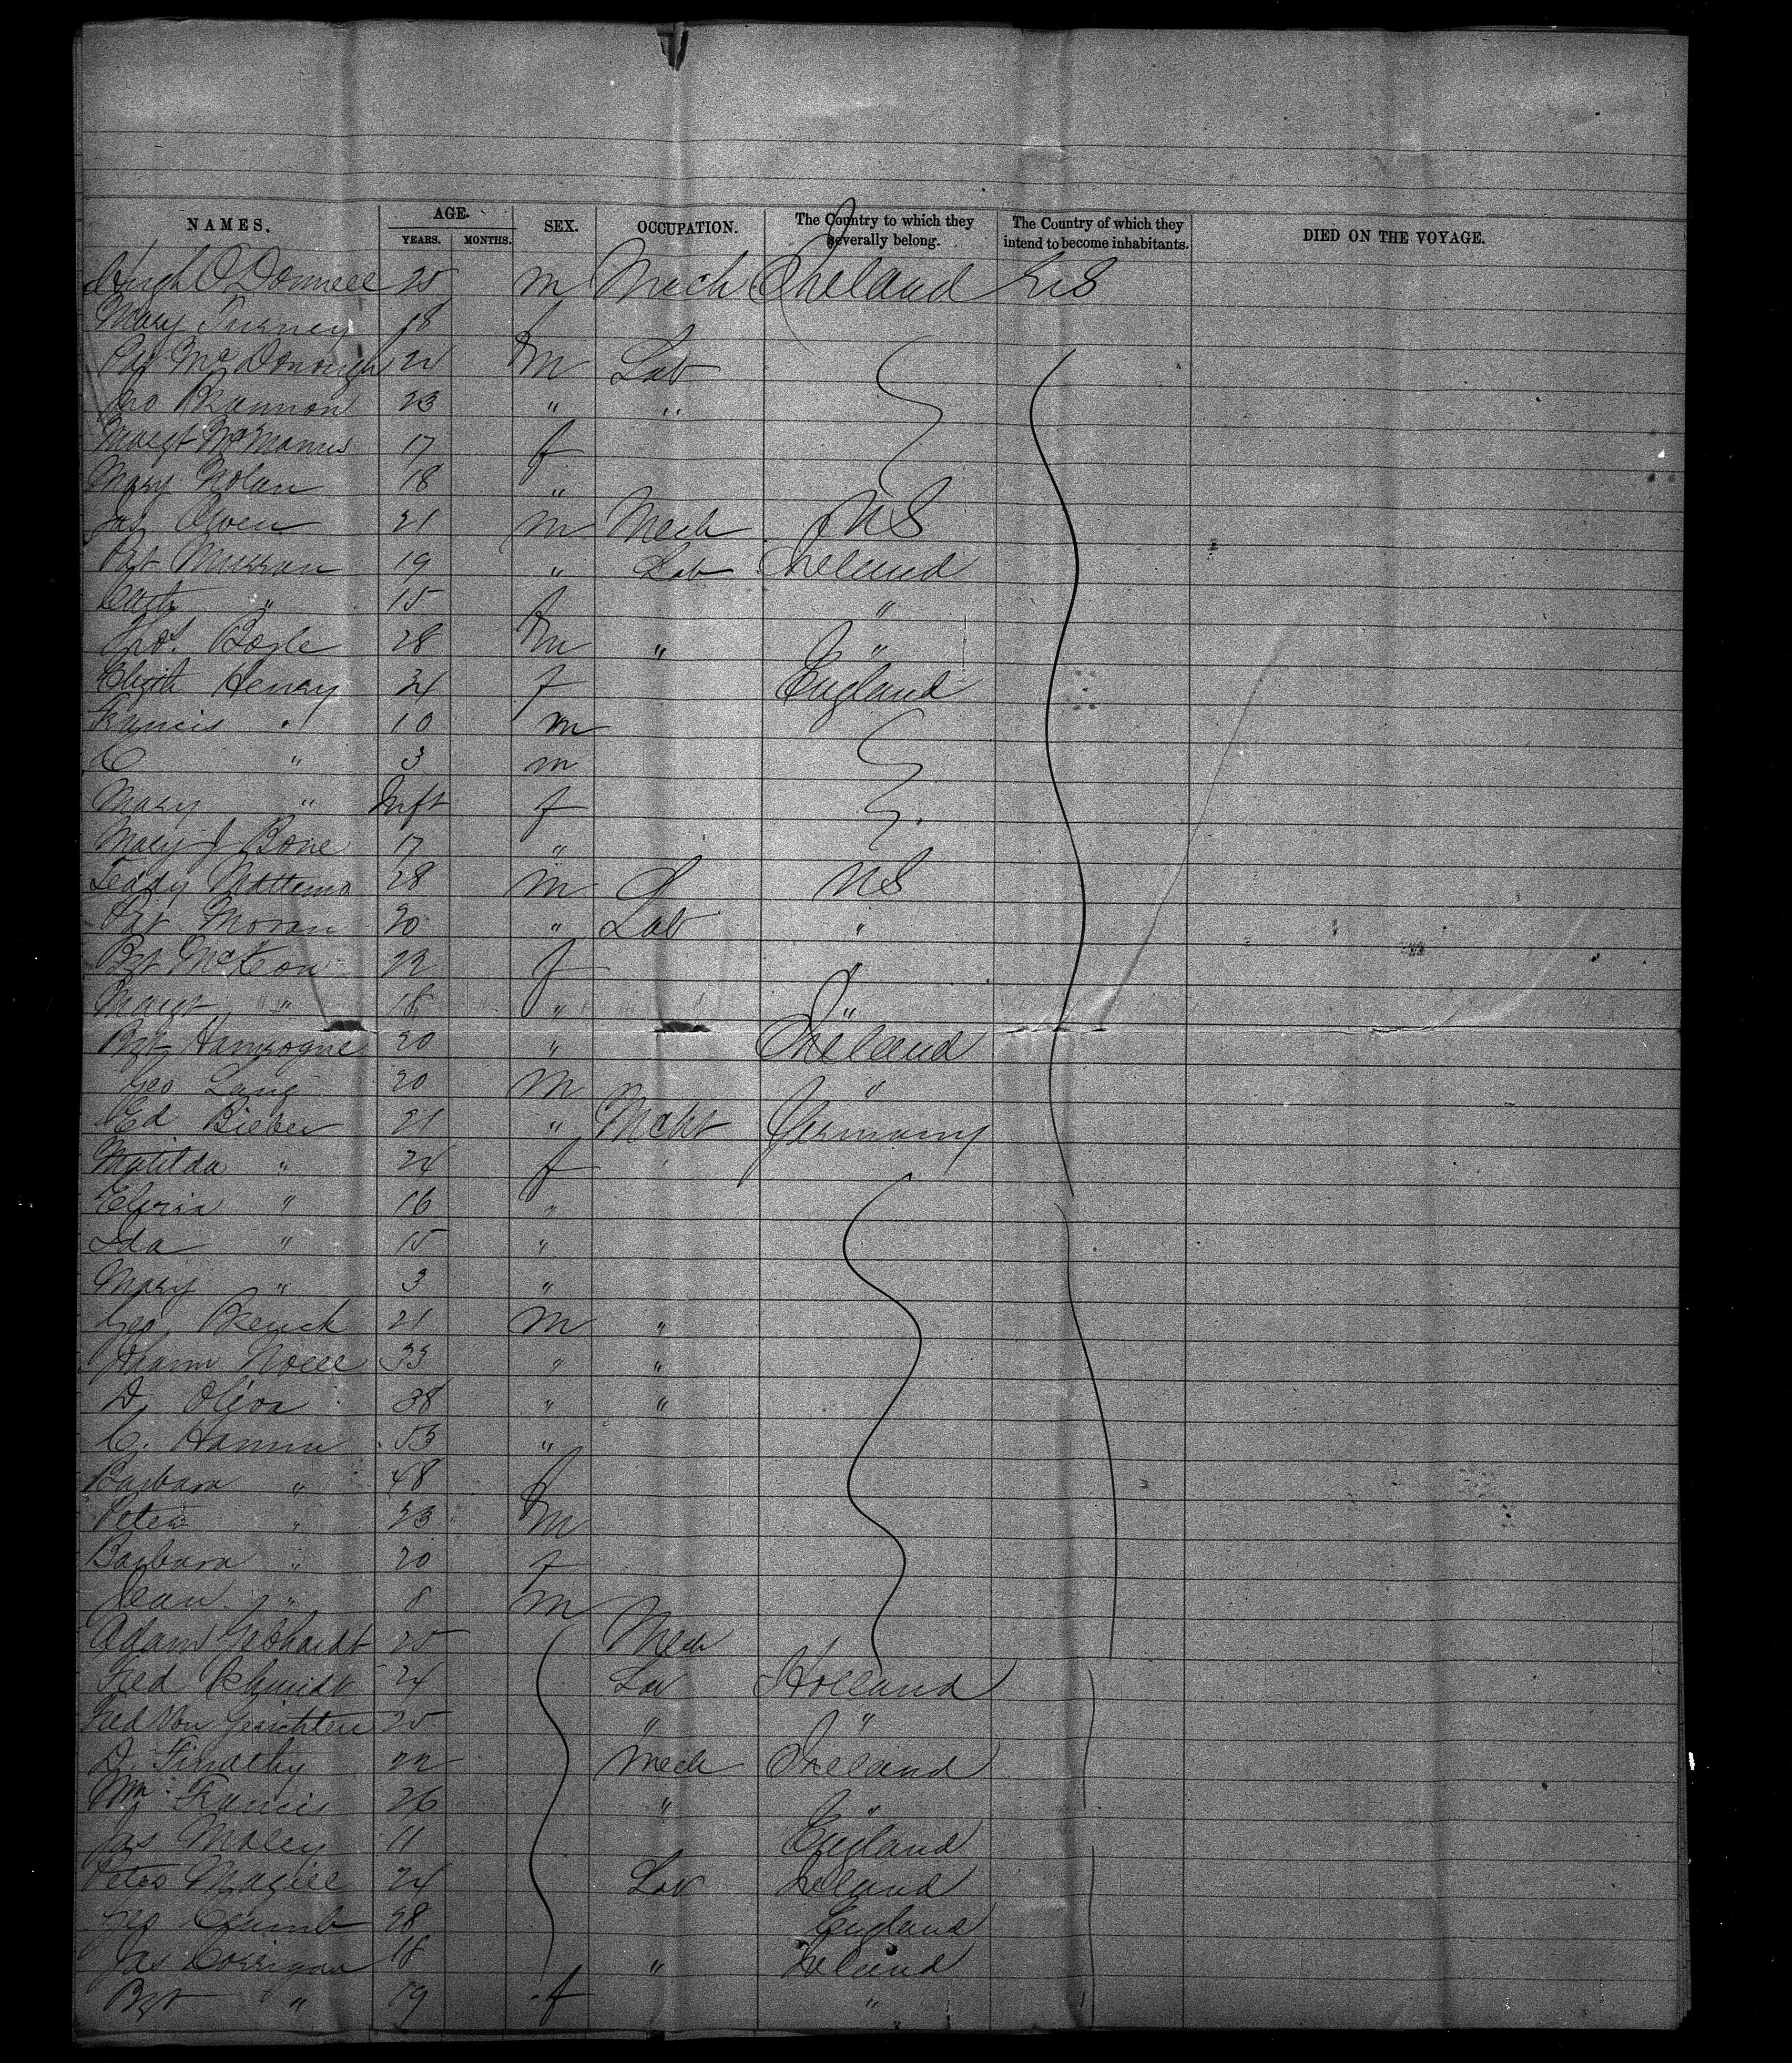 NAMES. AGE. SEX. OCCUPATION. The Country to which they severally belong. The Country of which they intend to become inhabitants. DIED ON THE VOYAGE.
YEARS. MONTHS.
Hugh O'Donnell 25 m Mech Ireland US
Mary 18 f
Pat McDonough 24 m Lab
Jno Brannon 23 " "
Margt McManus 17 f
Mary Nolan 18 "
Jas Owen 21 m Mech US
Pat 19 " Lab Ireland
" 15 f "
Thos. Boyle 28 m " "
Elizth Henry 34 f England
Francis " 10 m
C " 3 m
Mary " Inft f
Mary J Bone 17 "
Teddy 28 m US
Pat Moran 20 " Lab "
Bgt McKeon 22 f "
Margt " 18 " "
Bgt 20 " Ireland
Geo Lang 20 m "
Ed Bieber 21 " Mcht Germany
Matilda " 24 f
" 16 "
Ida " 15 "
Mary " 3 "
Geo 21 m "
Noell 33 " "
D. Oliva 38 " "
C. Hamm 53 "
Barbara " 48 f
Peter " 23 m
Barbara " 20 f
Jean " 8 m
Adam Gebhardt 25 Mech
Fred Schmidt 24 Lab Holland
Fred Von Gerichten 25 " "
D. 22 Mech Ireland
Wm Francis 26 " "
Jas Maley 11 England
Peter Magill 24 Lab Ireland
Geo Crumb 28 England
Jas Corrigan 18 " Ireland
Bgt " 19 f "